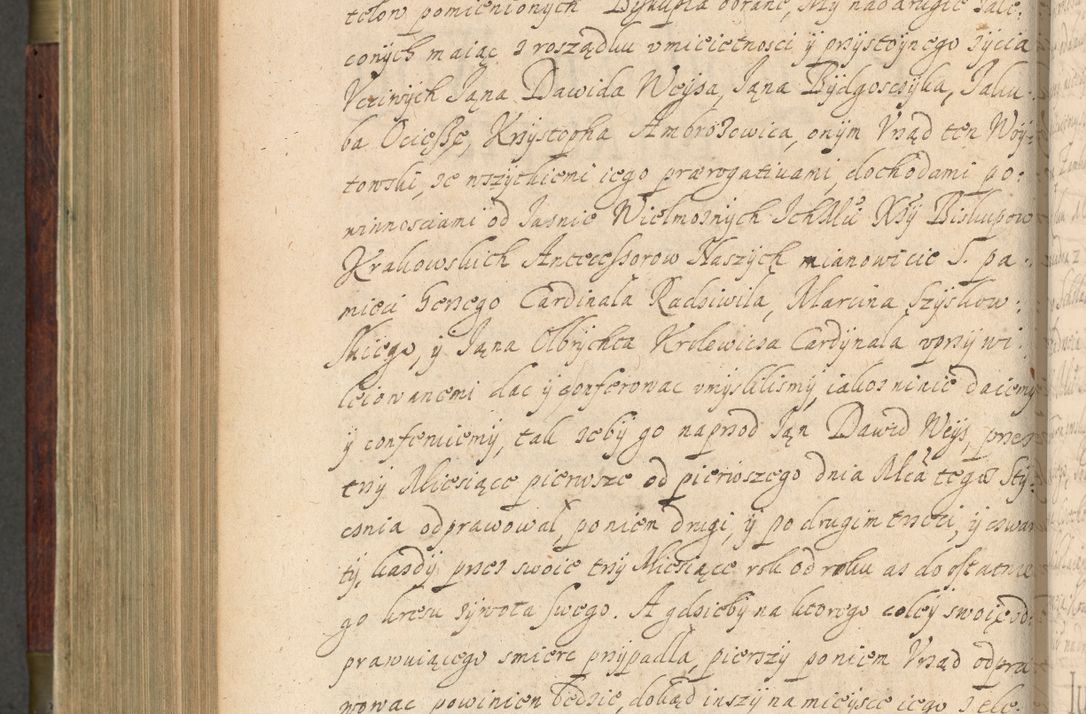 telow pomienionych Biskupia obrane, My naddrugie zale-
conych maiąc z rosządku vmieietnosci ÿ przystoynego zÿcia
Vczciwÿch Jąna Dawida Weÿsa, Jąna Bÿdgosczÿka, Jaku-
ba Ociesse, Krzÿstopha Ambrozowica, onÿm Vrząd ten Woÿ-
towski, ze wszÿtkiemi iego prærogatiuami, dochodami po-
winnosciami od Jasnie Wielmoznÿch Ichmu Xzÿ Biskupow
Krakowskich Antecessorow Naszÿch mianowicie S. pa-
mieci Gerzego Cardinala Radziwila, Marcina Szÿszkow-
skiego, ÿ Jąna Olbrÿchta Krolewicza Cardÿnala vprzÿwi-
leiowanemi dac ÿ conferowac vmÿslilismÿ, iakoz ninie daiemÿ
ÿ conferuiemÿ, tak zebÿ go naprzod Jąn Dawid Weÿs, przez
trzÿ Miesiące pierwsze od pierwszego dnia Mca tego Stÿ-
cznia odprawował, poniem drugi, ÿ po drugim trzeci, ÿ czwar
tÿ, kazdÿ przez swoie trzÿ Miesiące rok od roku as do ostatnie
go kresu zÿwota swego. A gdziebÿ na ktorego coleÿ swoię od-
prawuiącego smierc przÿpadla, pierszÿ poniem Vrząd odpra
wowac powinien bedzie, dokąd inszÿ na mieÿsce iego z ele-